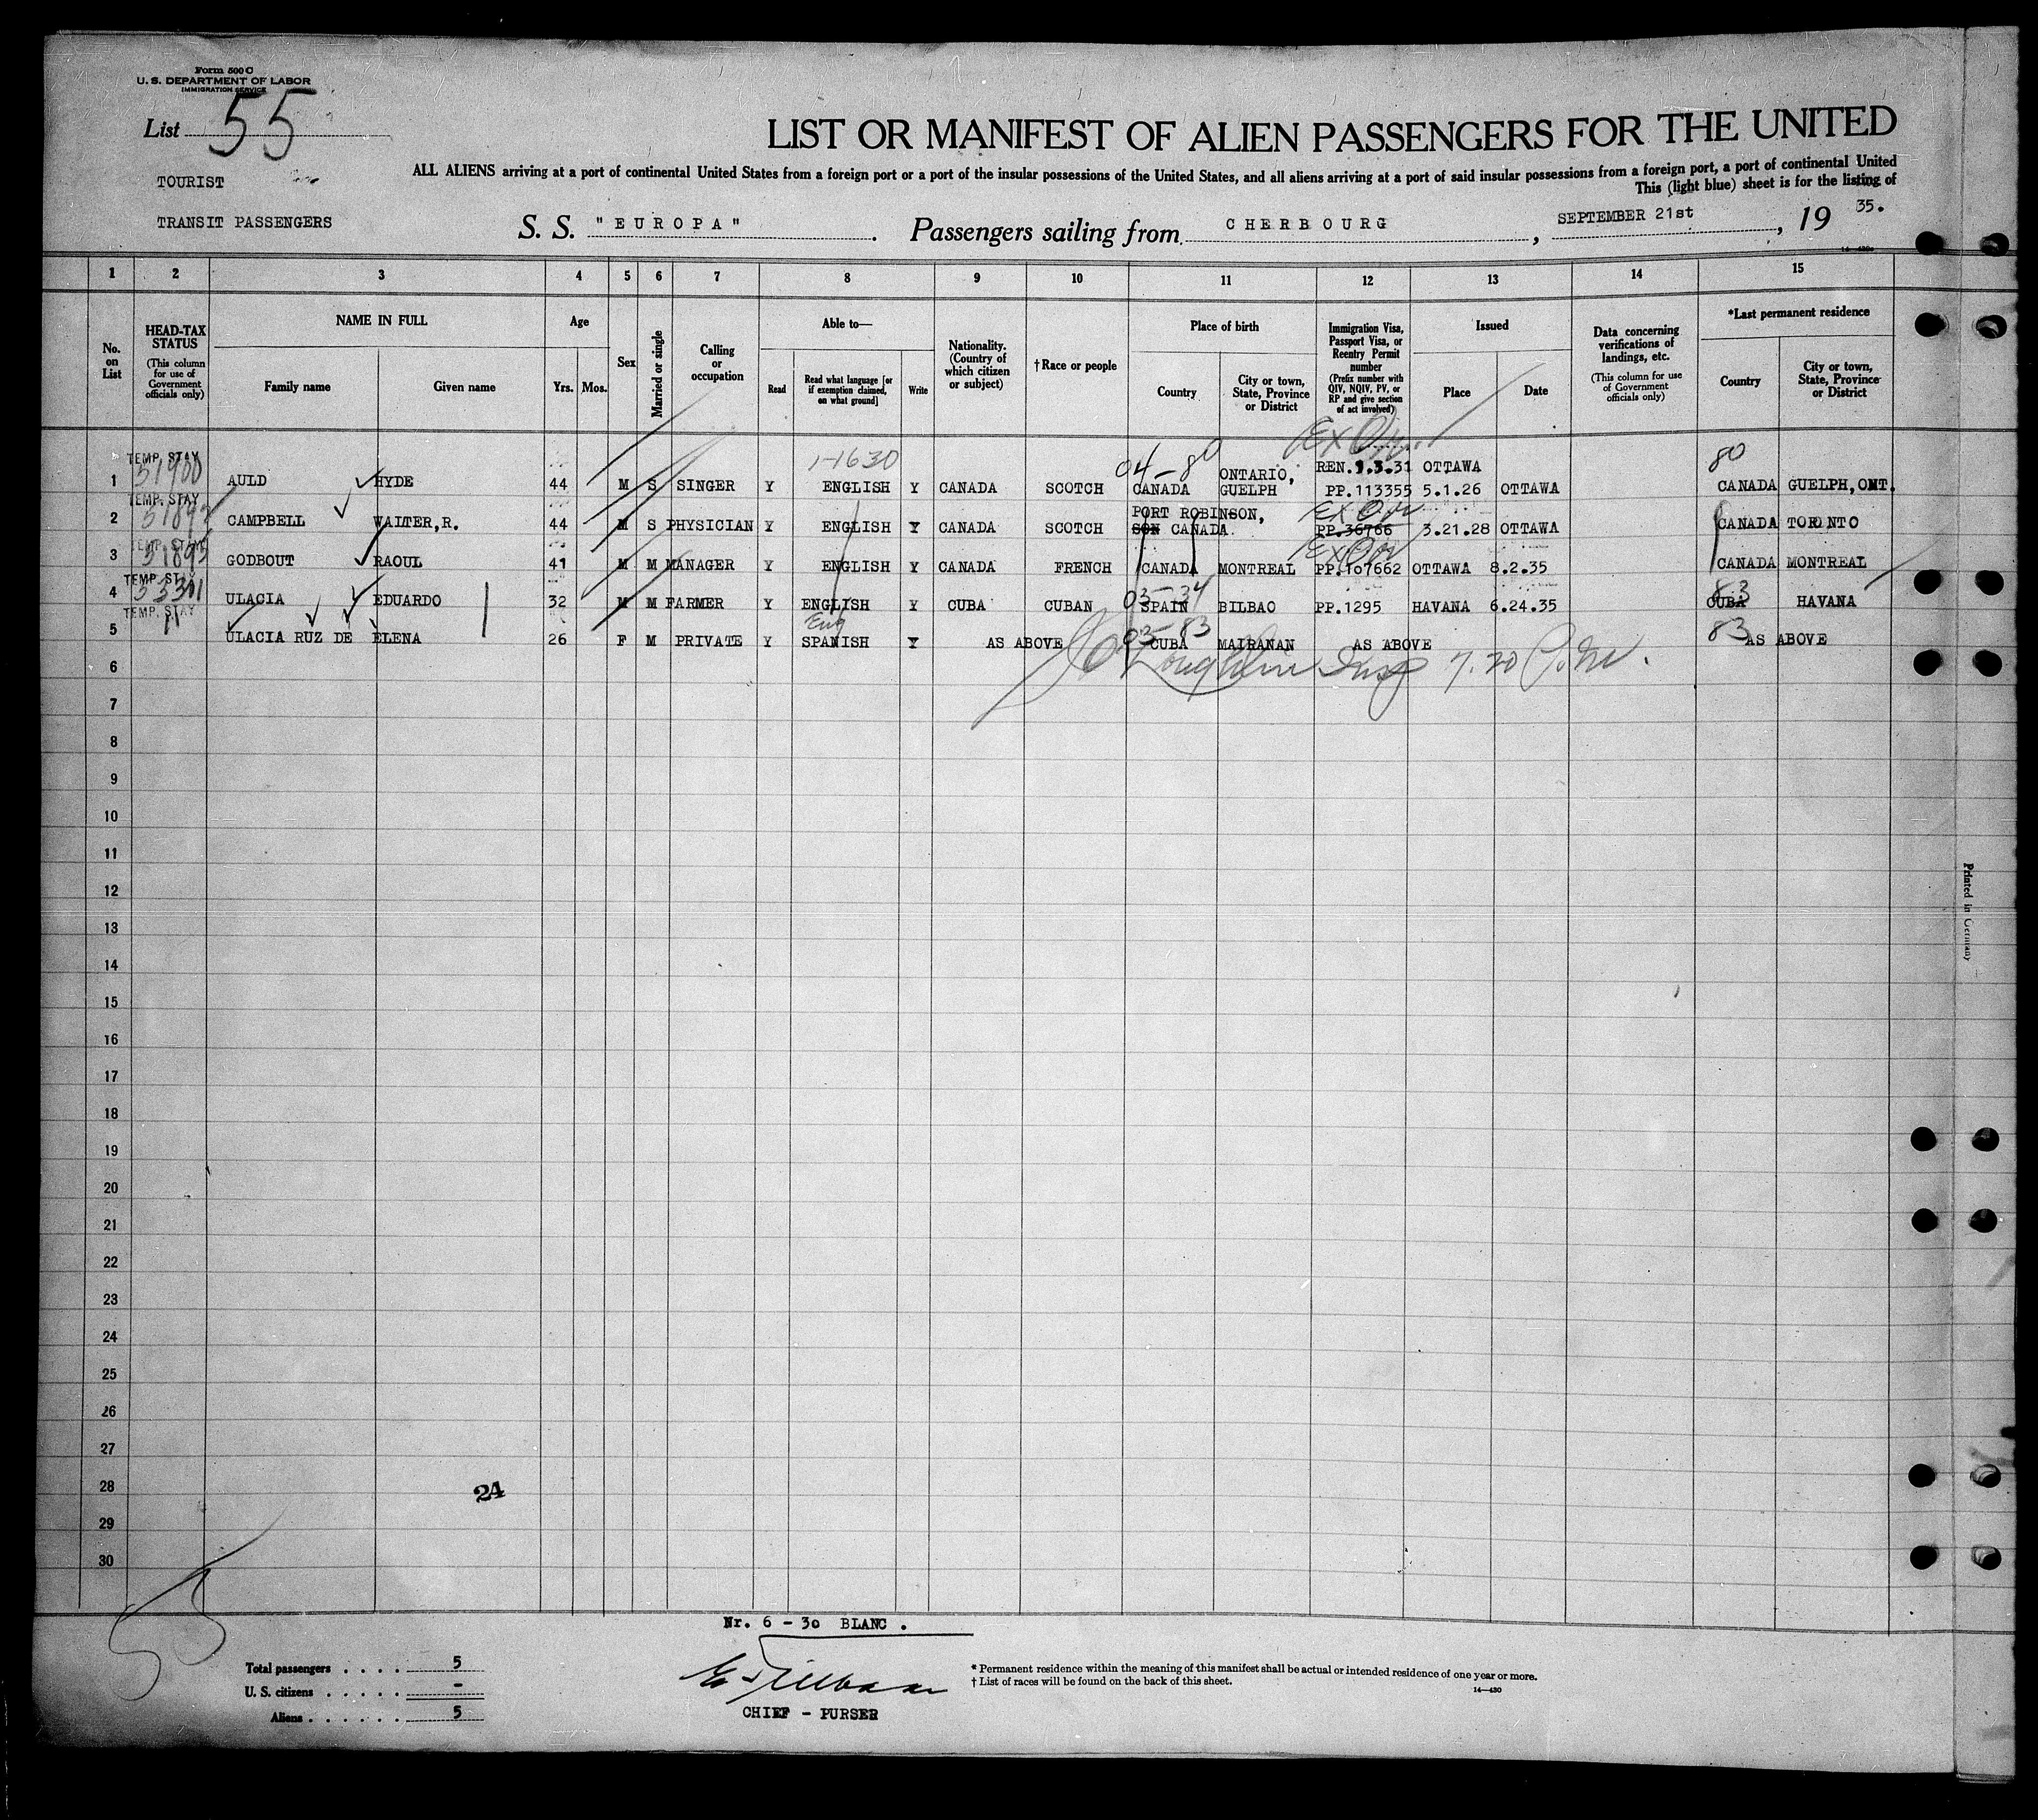 Form 500 C
U. S. DEPARTMENT OF LABOR
IMMIGRATION SERVICE
List 55
LIST OR MANIFEST OF ALIEN PASSENGERS FOR THE UNITED
ALL ALIENS arriving at a port of continental United States from a foreign port or a port of the insular possessions of the United States, and all aliens arriving at a port of said insular possessions from a foreign port, a port of continental United
This (light blue) sheet is for the listing of
TOURIST
TRANSIT PASSENGERS
S. S. "EUROPA" . Passengers sailing from CHERBOURG , SEPTEMBER 21st , 19 35.
1 2 3 4 5 6 7 8 9 10 11 12 13 14 15
No. on List
HEAD-TAX STATUS (This column for use of Government officials only)
NAME IN FULL
Family name Given name
Age
Yrs. Mos.
Sex
Married or single
Calling or occupation
Able to—
Read Read what language [or if exemption claimed, on what ground] Write
Nationality. (Country of which citizen or subject)
†Race or people
Place of birth
Country City or town, State, Province or District
Immigration Visa, Passport Visa, or Reentry Permit number (Prefix number with QIV, NQIV, PV, or RP and give section of act involved)
Issued
Place Date
Data concerning verifications of landings, etc. (This column for use of Government officials only)
*Last permanent residence
Country City or town, State, Province or District
TEMP. STAY 51900 1-1630 04-80 ONTARIO, REN. 1.3.31 OTTAWA 80
1 AULD HYDE 44 M S SINGER Y ENGLISH Y CANADA SCOTCH CANADA GUELPH PP.113355 5.1.26 OTTAWA CANADA GUELPH, ONT.
TEMP. STAY PORT ROBINSON,
2 CAMPBELL WALTER,R. 44 M S PHYSICIAN Y ENGLISH Y CANADA SCOTCH SON CANADA PP.36766 3.21.28 OTTAWA CANADA TORONTO
TEMP. STAY
3 GODBOUT RAOUL 41 M M MANAGER Y ENGLISH Y CANADA FRENCH CANADA MONTREAL PP.107662 OTTAWA 8.2.35 CANADA MONTREAL
TEMP. STAY 03-34 83
4 ULACIA EDUARDO 32 M M FARMER Y ENGLISH Y CUBA CUBAN SPAIN BILBAO PP.1295 HAVANA 6.24.35 CUBA HAVANA
TEMP. STAY " Eng 03-83 83
5 ULACIA RUZ DE ELENA 26 F M PRIVATE Y SPANISH Y AS ABOVE CUBA MAIRANAN AS ABOVE AS ABOVE
6 7.20 P.M.
7
8
9
10
11
12
13
14
15
16
17
18
19
20
21
22
23
24
25
26
27
28 24
29
30
Nr. 6 - 30 BLANC .
Total passengers . . . . 5
U. S. citizens . . . . . -
Aliens . . . . . . 5
CHIEF - PURSER
* Permanent residence within the meaning of this manifest shall be actual or intended residence of one year or more.
† List of races will be found on the back of this sheet.
14—430
Printed in Germany